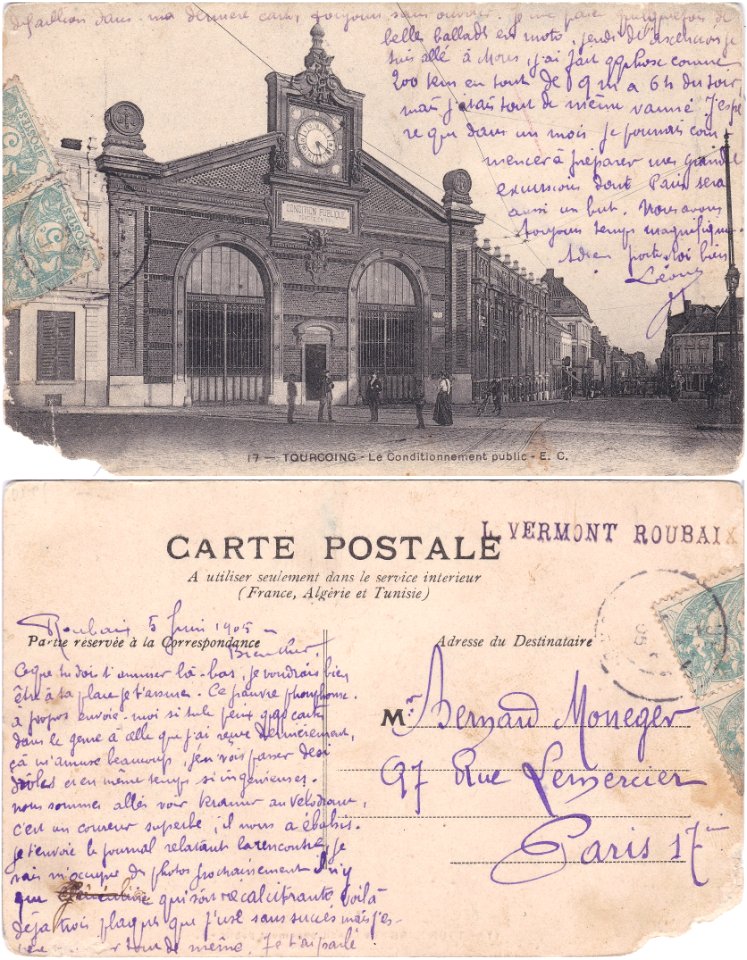 défaillion dans ma dernière carte, toujours sans ouvrir. Je me paie quelquefois de
belle ballads en moto. jeudi de ascencion je
suis allé à Mons, j'ai fait qq chose comme
200 kem en tout de 9 m à 6 h du soir,
mais j'étais tout de même vanné J'esp
re que dans un mois je pourrais com
mencer à préparer mes grande
excursions dont Paris sera
aussi un but. Nous avons
toujours temps magnifique.
Adieu porte-toi bien
Léon
CONDITION PUBLIQUE
17 — TOURCOING - Le Conditionnement public - E. C.
L. VERMONT ROUBAIX
CARTE POSTALE
A utiliser seulement dans le service interieur
(France, Algèrie et Tunisie)
Roubaix 5 Juin 1905
Partie réservée à la Correspondance
Adresse du Destinataire
Bien cher,
Ce que tu dois t'amuser là-bas, je voudrais bien
être à ta place je t'assure. Ce pauvre phonphone.
à propos envoie-moi si tu le peux qq carte
dans le genre à celle que j'ai reçue dernièrement,
çà m'amuse beaucoup, j'en vois passer de si
drôles et en même temps si ingénieuses.
nous sommes allés voir Kramer au velodrome,
c'est un coureur superbe, il nous a ébahis.
je t'envoie le journal relatant la rencontre. Je
vais m'occupe de photos prochainement Il n'y
que qui soit recalcitrante, voilà
déja trois plaques que j'use sans succès mais j'es-
tour de même. Je t'ai parlé
Mr Bernard Moneger
97 Rue Lemercier
Paris 17me